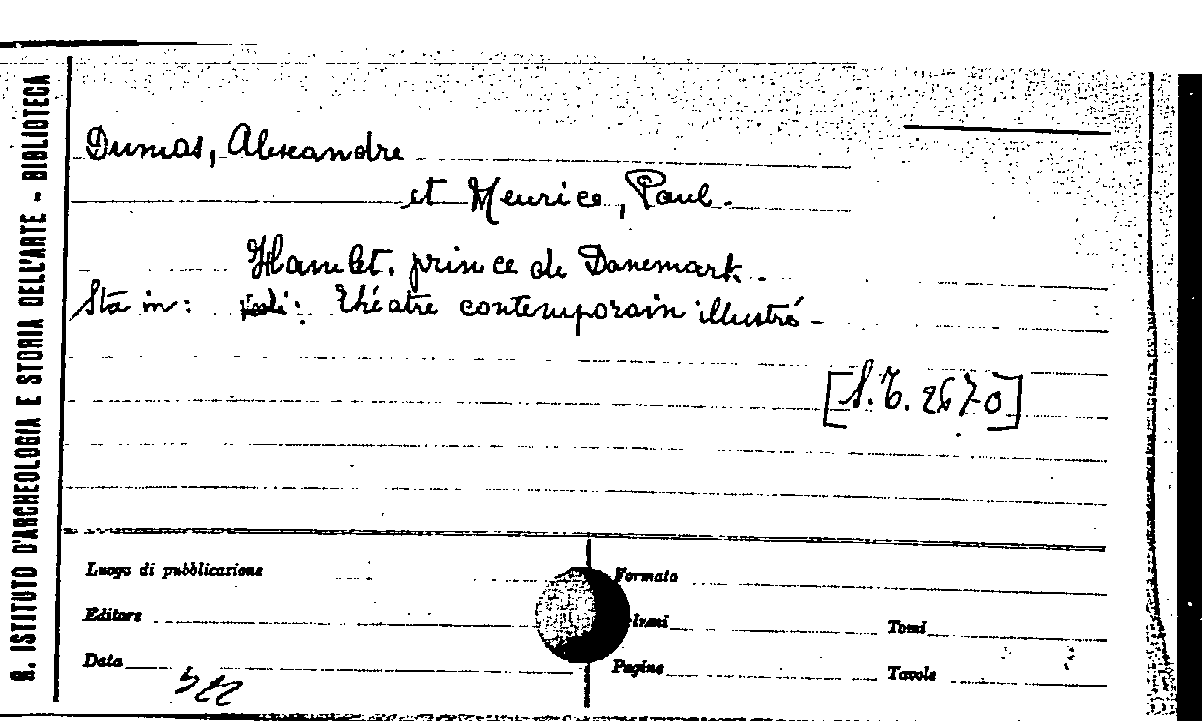 R. ISTITUTO D'ARCHEOLOGIA E STORIA DELL'ARTE - BIBLIOTECA
Dumas, Alexandre
et Meurice, Paul.
Hamlet, prince de Danemark.
Sta in: vedi: Théatre contemporain illustré -
[S.T. 267-0]
Luogo di pubblicazione
Formato
Editore
Tomi
Data
Pagine
Tavole